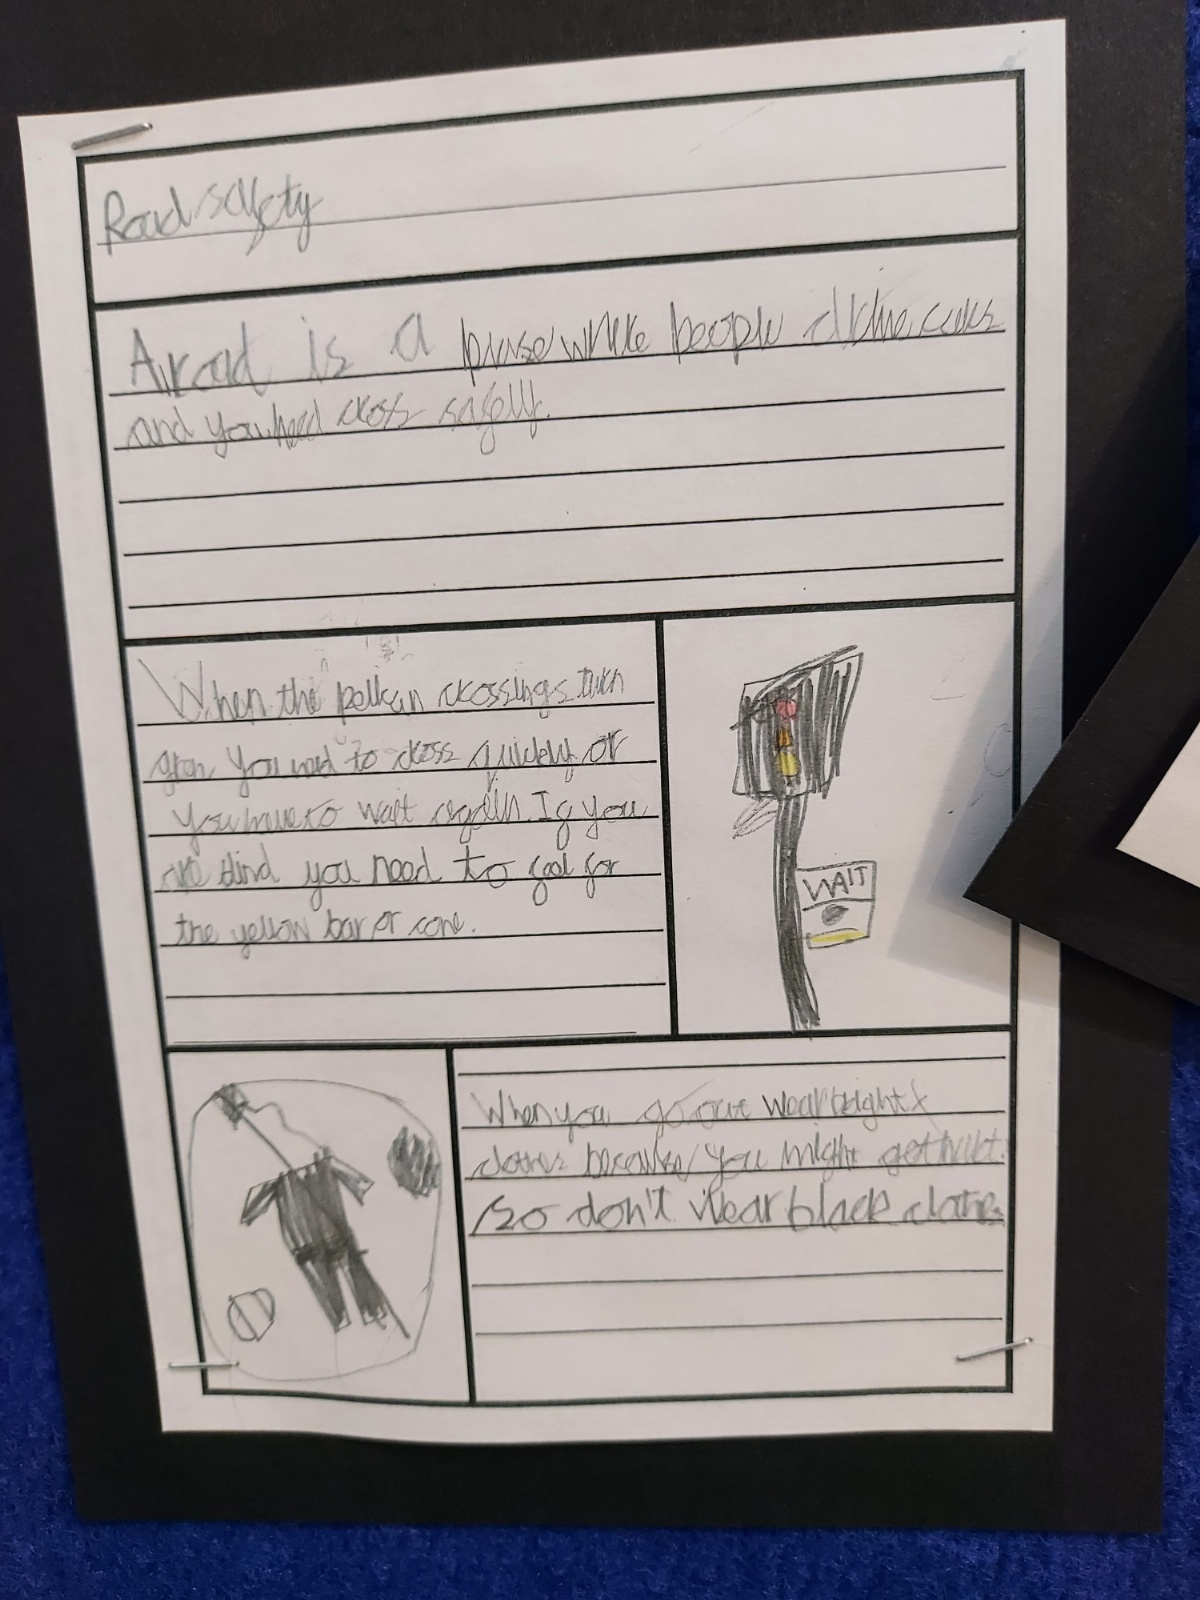 Road safety
A road is a plase where people drive cars
and you need cross safely.
When the pelican crossings turn
green you need to cross quickly or
you have to wait again. If you
are blind you need to feel for
the yellow bar or cone.
WAIT
When you go out wear bright
clothes because you might get hurt.
So don't wear black clothes